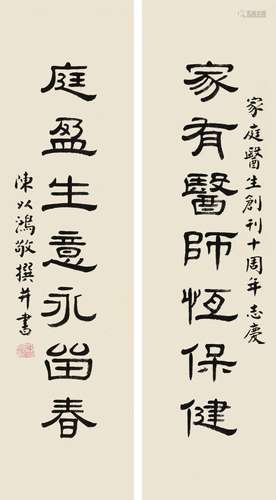 家庭醫生創刊十周年志慶
家有醫師恆保健
庭盈生意永留春
陳以鴻敬撰并書